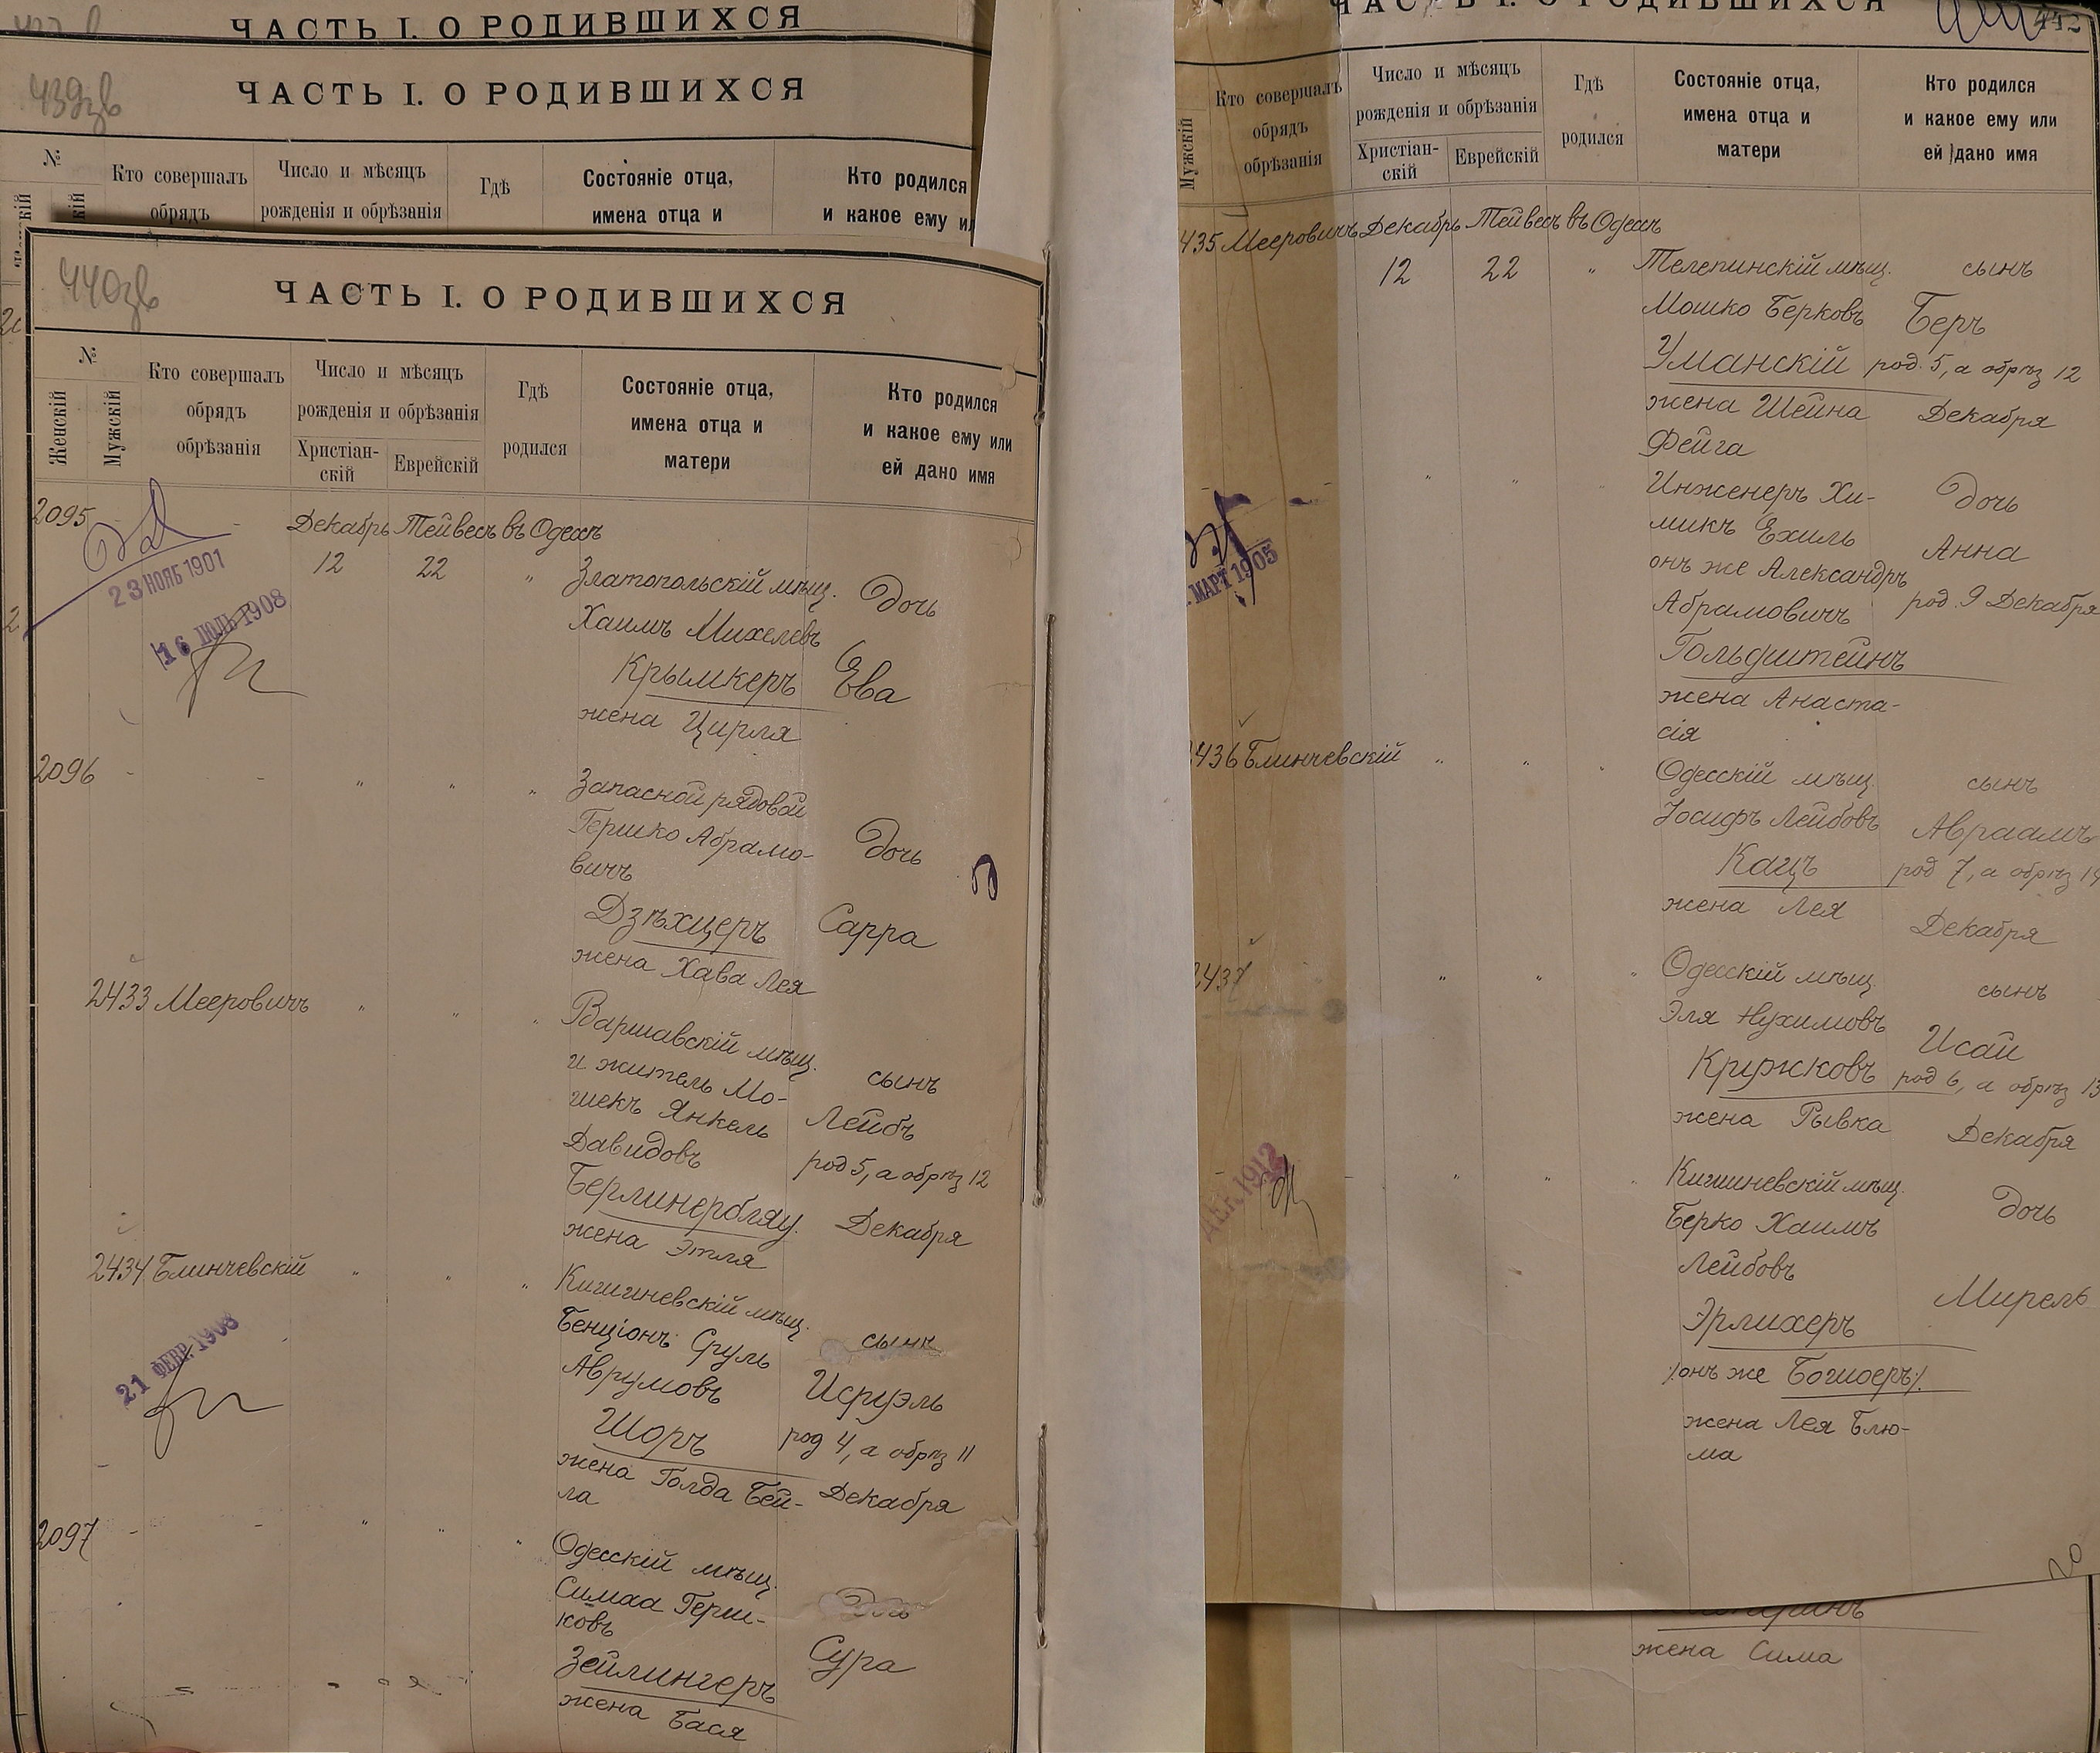 ЧАСТЬ I. О РОДИВШИХСЯ
439зв
ЧАСТЬ I. О РОДИВШИХСЯ
№
Кто совершалъ
обрядъ
Число и мѣсяцъ
рожденія и обрѣзанія
Гдѣ
Состояніе отца,
имена отца и
Кто родился
и какое ему
440зв
ЧАСТЬ I. О РОДИВШИХСЯ
№
Женскій
Мужскій
Кто совершалъ
обрядъ
обрѣзанія
Число и мѣсяцъ
рожденія и обрѣзанія
Христіан-
скій
Еврейскій
Гдѣ
родился
Состояніе отца,
имена отца и
матери
Кто родился
и какое ему или
ей дано имя
2095 - Декабрь Тейвесъ въ Одессѣ
12 22 "
23 НОЯБ 1901
16 ІЮЛЬ 1908
Златопольскій мѣщ. Дочь
Хаимъ Михелевъ
Крымкеръ Ева
жена Цирля
2096 - - " " "
Запасной рядовой
Гершко Абрамо- Дочь
вичъ
Дзѣхцеръ Сарра
жена Хава Лея
2433 Мееровичъ " " "
Варшавскій мѣщ.
и житель Мо- сынъ
шекъ Янкель Лейбъ
Давидовъ род 5, а обрѣз 12
Берлинербляу Декабря
жена Этля
2434 Блинчевскій " " "
21 ФЕВР. 1908
Кишиневскій мѣщ.
Бенціонъ Сруль сынъ
Аврумовъ Исруэль
Шоръ род 4, а обрѣз 11
жена Голда Бей- Декабря
ла
2097 - - " " "
Одесскій мѣщ.
Симха Герш- Дочь
ковъ
Зейлингеръ Сура
жена Бася
ЧАСТЬ I. О РОДИВШИХСЯ
442
Мужскій
Кто совершалъ
обрядъ
обрѣзанія
Число и мѣсяцъ
рожденія и обрѣзанія
Христіан-
скій
Еврейскій
Гдѣ
родился
Состояніе отца,
имена отца и
матери
Кто родился
и какое ему или
ей дано имя
435 Мееровичъ Декабрь Тейвесъ въ Одессѣ
12 22 "
Телепинскій мѣщ. сынъ
Мошко Берковъ Беръ
Уманскій род. 5, а обрѣз 12
жена Шейна Декабря
Фейга
" "
МАРТ 1905
Инженеръ Хи- Дочь
микъ Ехиль Анна
онъ же Александръ
Абрамовичъ род. 9 Декабря
Гольдштейнъ
жена Анаста-
сія
436 Блинчевскій " " "
Одесскій мѣщ. сынъ
Іосифъ Лейбовъ Авраамъ
Кацъ род 7, а обрѣз 14
жена Лея Декабря
2437 " " "
Одесскій мѣщ. сынъ
Эля Нухимовъ Исай
Кружковъ род 6, а обрѣз 13
жена Рывка Декабря
1912
- " " "
Кишиневскій мѣщ. Дочь
Берко Хаимъ
Лейбовъ Мирель
Эрлихеръ
/:онъ же Богшоеръ:/
жена Лея Блю-
ма
жена Сима